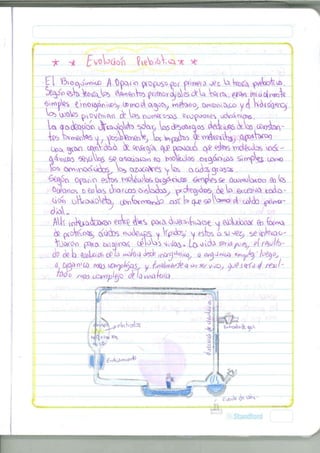 Evolución Prebiótica
El Bioquímico A. Oparin propuso por primera vez la teoría prebiótica.
Según esta teoría los elementos primordiales de la tierra, eran inicialmente
simples e inorgánicos, como el agua, metano, amoniaco y el hidrógeno,
los cuales provenían de las numerosas erupciones volcánicas.
La radiación Ultravioleta solar, las descargas eléctricas de las constan-
tes tormentas y, posiblemente, los impactos de meteoritos, aportaron
una gran cantidad de energía que provocó que estas moléculas inor-
gánicas sencillas se asociaran en moléculas orgánicas simples como
los aminoácidos, los azúcares y los ácidos grasos.
Según Oparin estas moléculas orgánicas simples se acumularon en los
océanos o en las charcas aisladas, protegidas de la excesiva radia-
ción ultravioleta, conformando así lo que se llama el caldo primor-
dial.
Allí interactuaron entre ellas para diversificarse y evolucionar en forma
de proteínas, ácidos nucleicos y lípidos; y estos a su vez, se estruc-
turaron para originar células vivas. La vida sería pues, el resulta-
do de la evolución de la materia desde inorgánica, a orgánica simple, luego,
a orgánica más compleja, y finalmente a un ser vivo, que sería el resul-
tado más complejo de la materia.
electrodos
Entrada de gas
Sistema de
Enfriamiento
Salida de
Standford